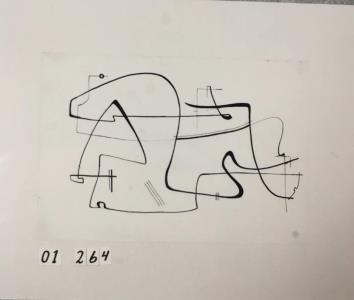 01 264